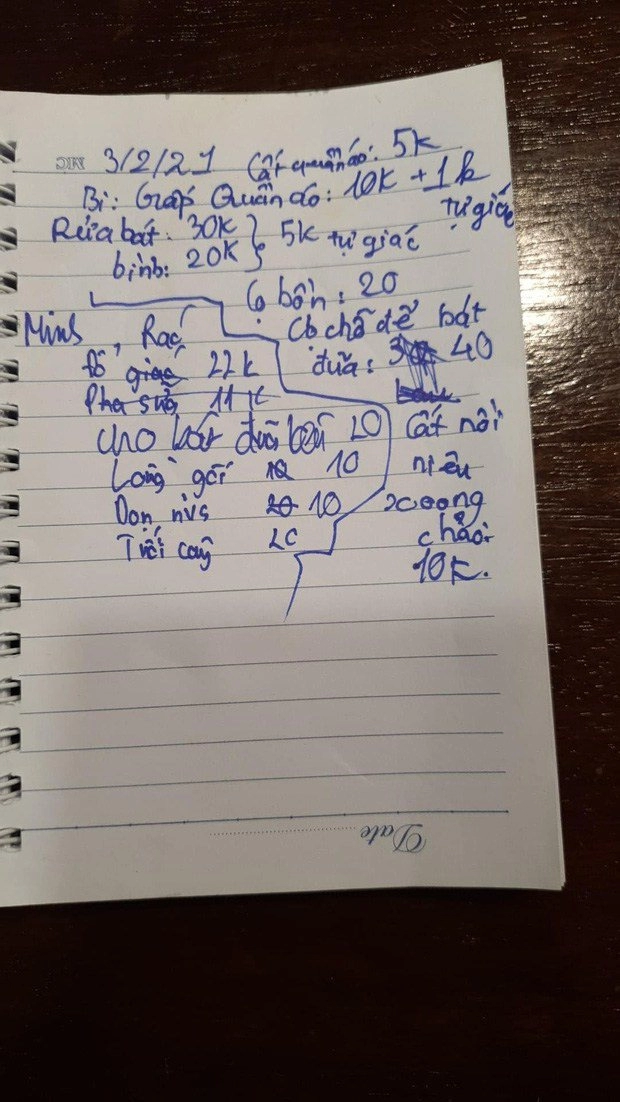 3/2/21 Cất quần áo: 5k
Bi: Gấp Quần áo: 10k + 1k
tự giác
Rửa bát: 30K } 5k tự giác
bình: 20K
Cọ bồn: 20
Minh
Cọ chỗ để bát
đũa: 40
Rác
Đổ giác 22k
Pha sữa 11k
cho bát đũa bẩn 20
Cất nồi
niêu
xoong
chảo:
10K.
Lồng gối 10 10
Dọn nvs 20 10
Tưới cây 20
Date